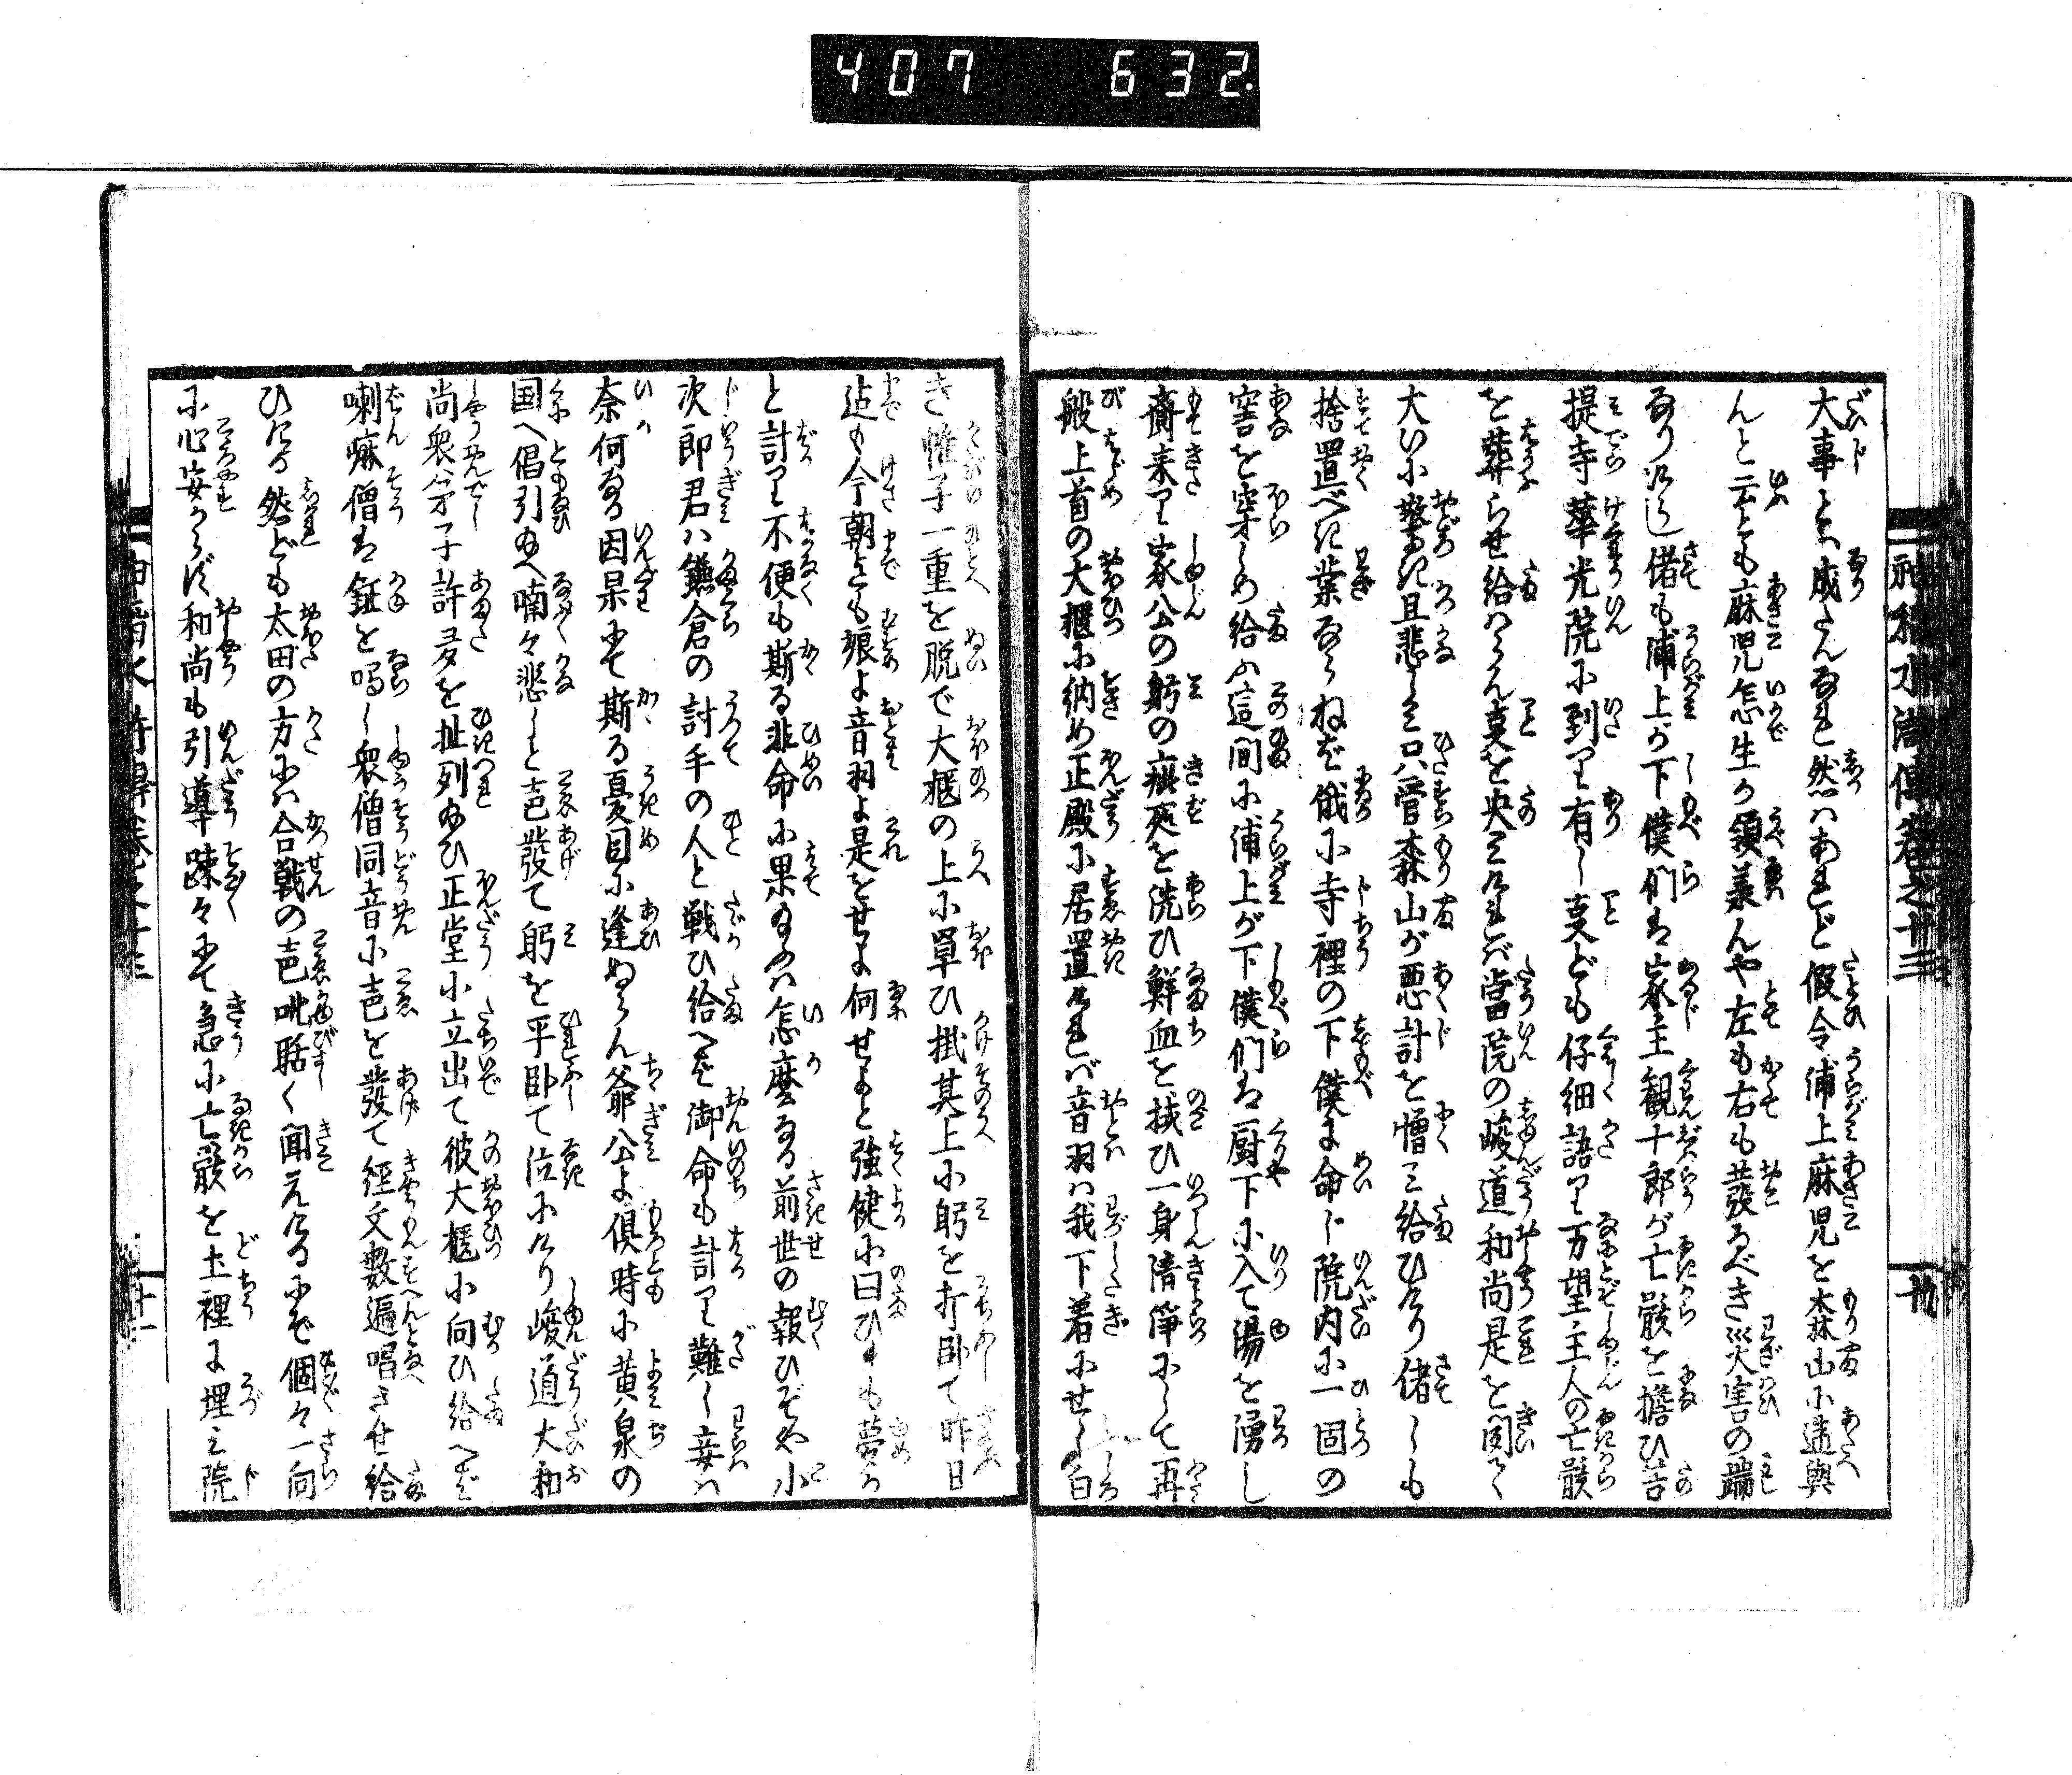 407 632
大事とは成さんなれ然はあれど假令浦上麻児を森山に遣與
んと云とも麻児怎生か領義んや左も右も發るべき災害の端
なりけらし偖も浦上が下僕們は家主観十郎が亡骸を擔ひ菩
提寺華光院に到り有し支ども仔細語り万望主人の亡骸
を葬らせ給はらん事を央みければ當院の峻道和尚是を聞て
大いに驚き且悲しみ只管森山が悪計を憎み給ひけり偖しも
捨置べき業ならねば俄に寺裡の下僕に命じ院内に一固の
窖を穿しめ給ふ這間に浦上が下僕們は厨下に入て湯を湧し
齎来り家公の躬の痕瘢を洗ひ鮮血を拭ひ一身清浄にして再
般上首の大櫃に納め正殿に居置ければ音羽は我下着にせし白
神稲水滸傳巻之十三
き帷子一重を脱で大櫃の上に罩ひ掛其上に躬を打臥て昨日
迠も今朝迠も娘よ音羽よ是をせよ何せよと強健に曰ひしも夢か
と計り不便も斯る非命に果給ふは怎麼なる前世の報ひぞや小
次郎君は鎌倉の討手の人と戦ひ給へば御命も計り難し妾は
奈何なる因果にて斯る憂目に逢ぬらん爺公よ倶時に黄泉の
国へ倡引給へ喃々悲しと声發て躬を平臥て泣にけり峻道大和
尚衆弟子許多を扯列給ひ正堂に立出て彼大櫃に向ひ給へば
喇嘛僧は鉦を鳴し衆僧同音に声を發て經文數遍唱させ給
ひける然ども太田の方には合戦の声吡聒く聞えけるにぞ個々一向
に心安からず和尚も引導疎々にて急に亡骸を土裡に埋み院